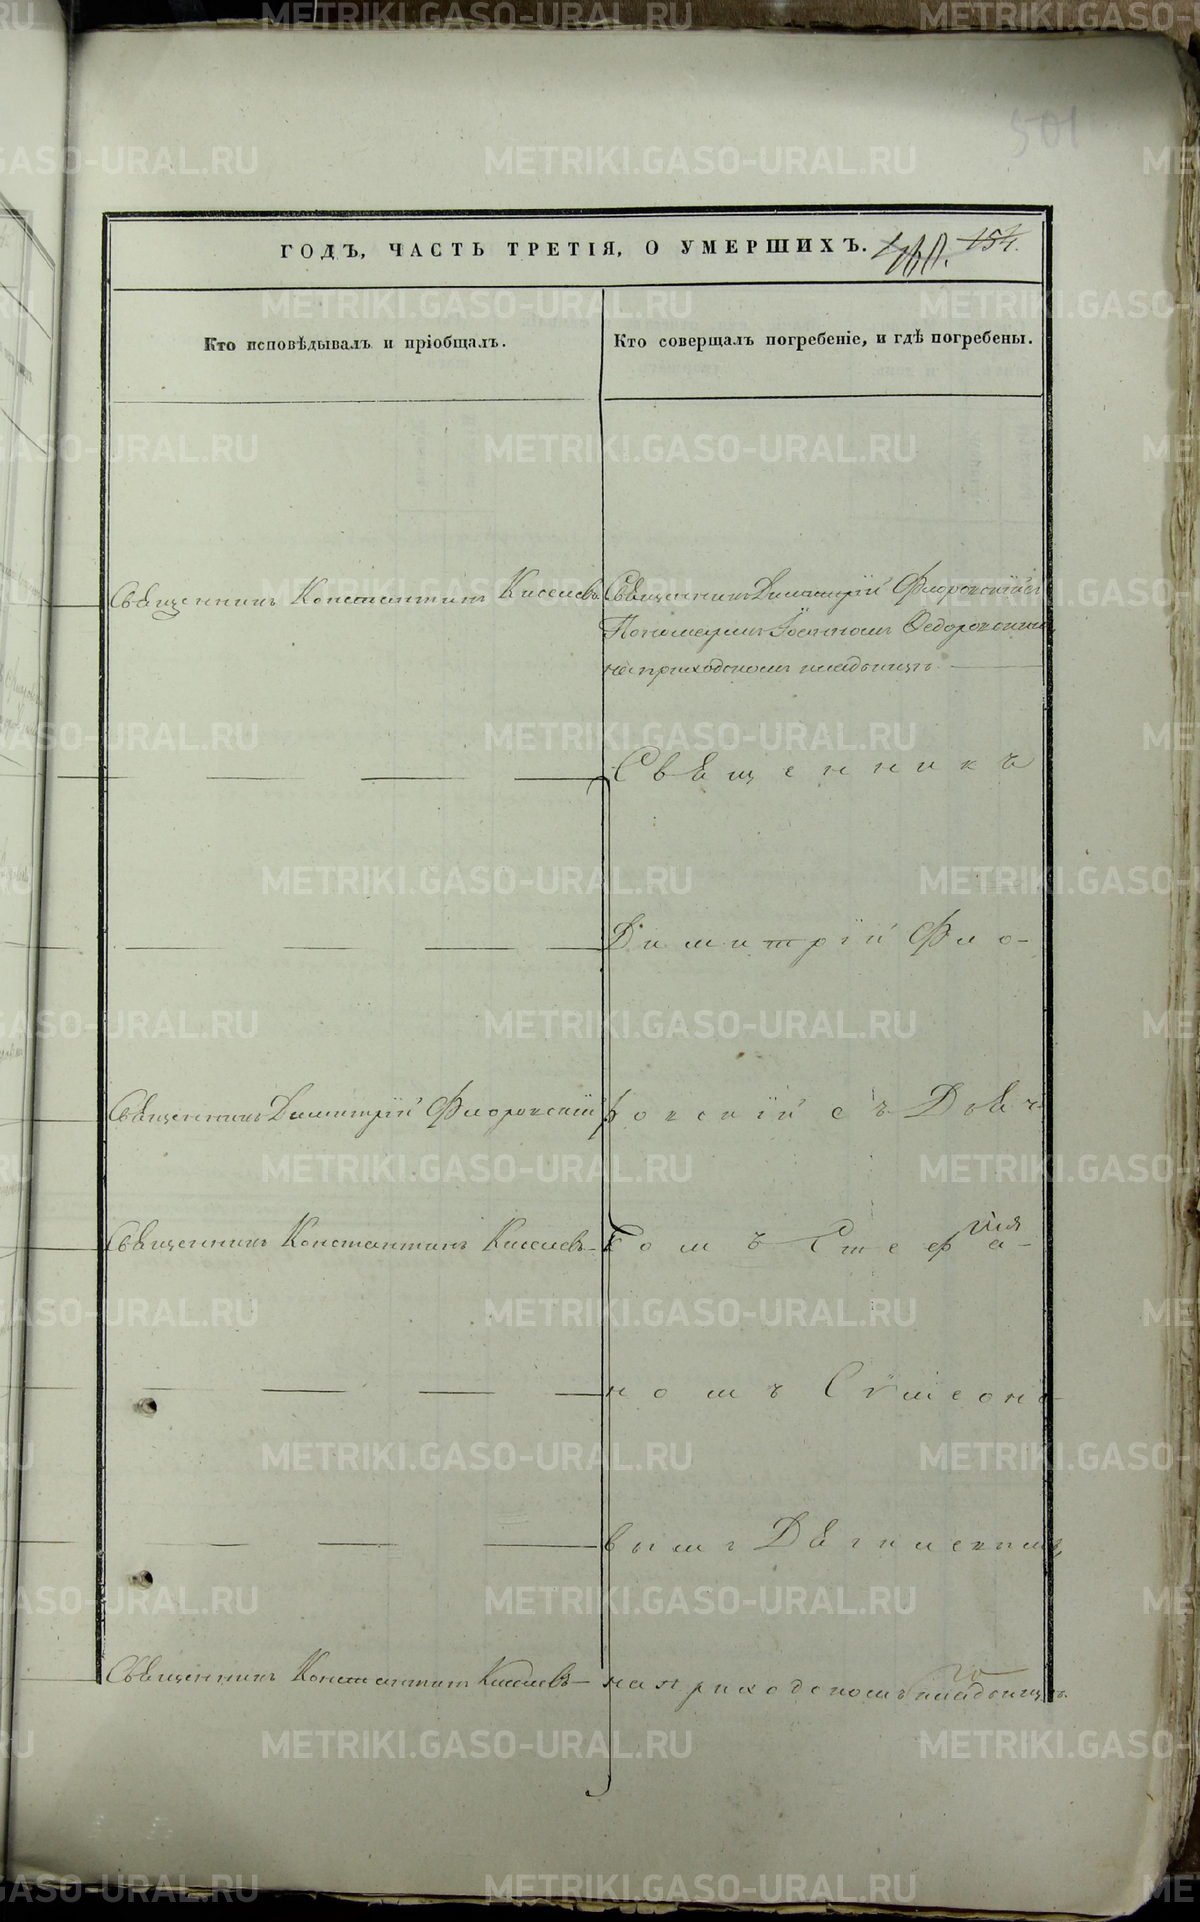 501
ГОДЪ, ЧАСТЬ ТРЕТІЯ, О УМЕРШИХЪ. 154.
Кто исповѣдывалъ и пріобщалъ.
Кто совершалъ погребеніе, и гдѣ погребены.
Священникъ Константинъ Киселевъ
Священникъ Димитрій Флоровскій съ
Пономаремъ Іоанномъ Ѳедоровскимъ
на приходскомъ кладбищѣ.
Священникъ
Димитрій Фло-
Священникъ Димитрій Флоровскій
ровскій съ Дьяч
Священникъ Константинъ Киселевъ
комъ Стефа-
номъ
вымъ
Священникъ Константинъ Киселевъ
на приходскомъ кладбищѣ.
METRIKI.GASO-URAL.RU